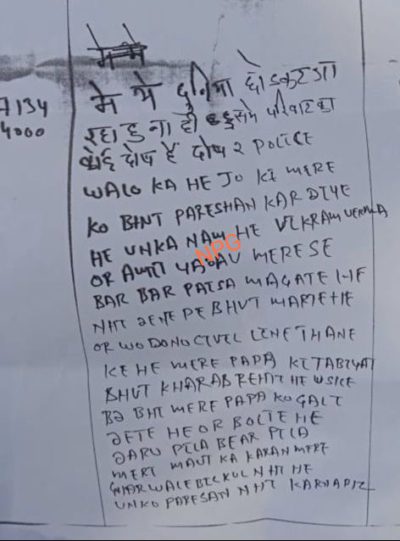 मे ये दुनिया छोडकर जा
7134
रहा हु ना ही इसमे परिवार का
4000
कोई दोष हैं दोष 2 POLICE
WALO KA HE JO KI MERE
KO BHUT PARESHAN KAR DIYE
HE UNKA NAM HE VIKRAM VERMA
OR AMIT YADAV MERE SE
NPG
BAR BAR PAISA MAGATE HE
NHI DENE PE BHUT MARTE HE
OR WO DONO CIVEL LINE THANE
KE HE MERE PAPA KI TABIYAT
BHUT KHARAB REHTI HE USKE
BHI MERE PAPA KO GALI
DETE HE OR BOLTE HE
DARU PILA BEAR PILA
MERI MAUT KA KARAN MERE
GHAR WALE BILKUL NHI HE
UNKO PARESAN NHI KARNA